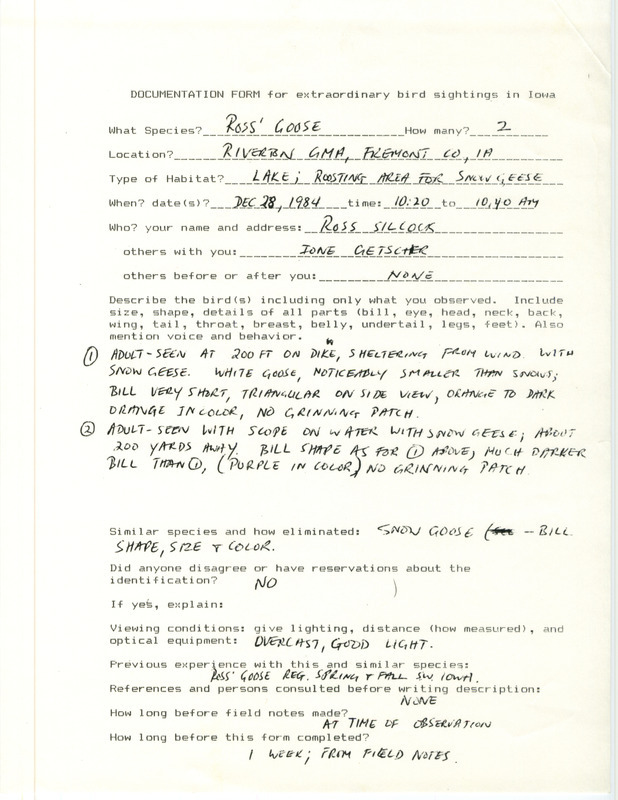 DOCUMENTATION FORM for extraordinary bird sightings in Iowa
What Species? ROSS' GOOSE How many? 2
Location? RIVERTON GMA, FREMONT CO, IA
Type of Habitat? LAKE; ROOSTING AREA FOR SNOW GEESE
When? date(s)? DEC 28, 1984 time: 10:20 to 10:40 AM
Who? your name and address: ROSS SILCOCK
others with you: IONE GETSCHER
others before or after you: NONE
Describe the bird(s) including only what you observed. Include
size, shape, details of all parts (bill, eye, head, neck, back,
wing, tail, throat, breast, belly, undertail, legs, feet). Also
mention voice and behavior.
① ADULT-SEEN AT 200 FT ON DIKE, SHELTERING FROM WIND WITH
SNOW GEESE. WHITE GOOSE, NOTICEABLY SMALLER THAN SNOWS;
BILL VERY SHORT, TRIANGULAR ON SIDE VIEW, ORANGE TO DARK
ORANGE IN COLOR, NO GRINNING PATCH.
② ADULT-SEEN WITH SCOPE ON WATER WITH SNOW GEESE; ABOUT
200 YARDS AWAY. BILL SHAPE AS FOR ① ABOVE, MUCH DARKER
BILL THAN ①, (PURPLE IN COLOR) NO GRINNING PATCH.
Similar species and how eliminated: SNOW GOOSE -- BILL
SHAPE, SIZE & COLOR.
Did anyone disagree or have reservations about the
identification? NO
If yes, explain:
Viewing conditions: give lighting, distance (how measured), and
optical equipment: OVERCAST, GOOD LIGHT.
Previous experience with this and similar species:
ROSS' GOOSE REG. SPRING & FALL SW. IOWA.
References and persons consulted before writing description:
NONE
How long before field notes made?
AT TIME OF OBSERVATION
How long before this form completed?
1 WEEK; FROM FIELD NOTES.